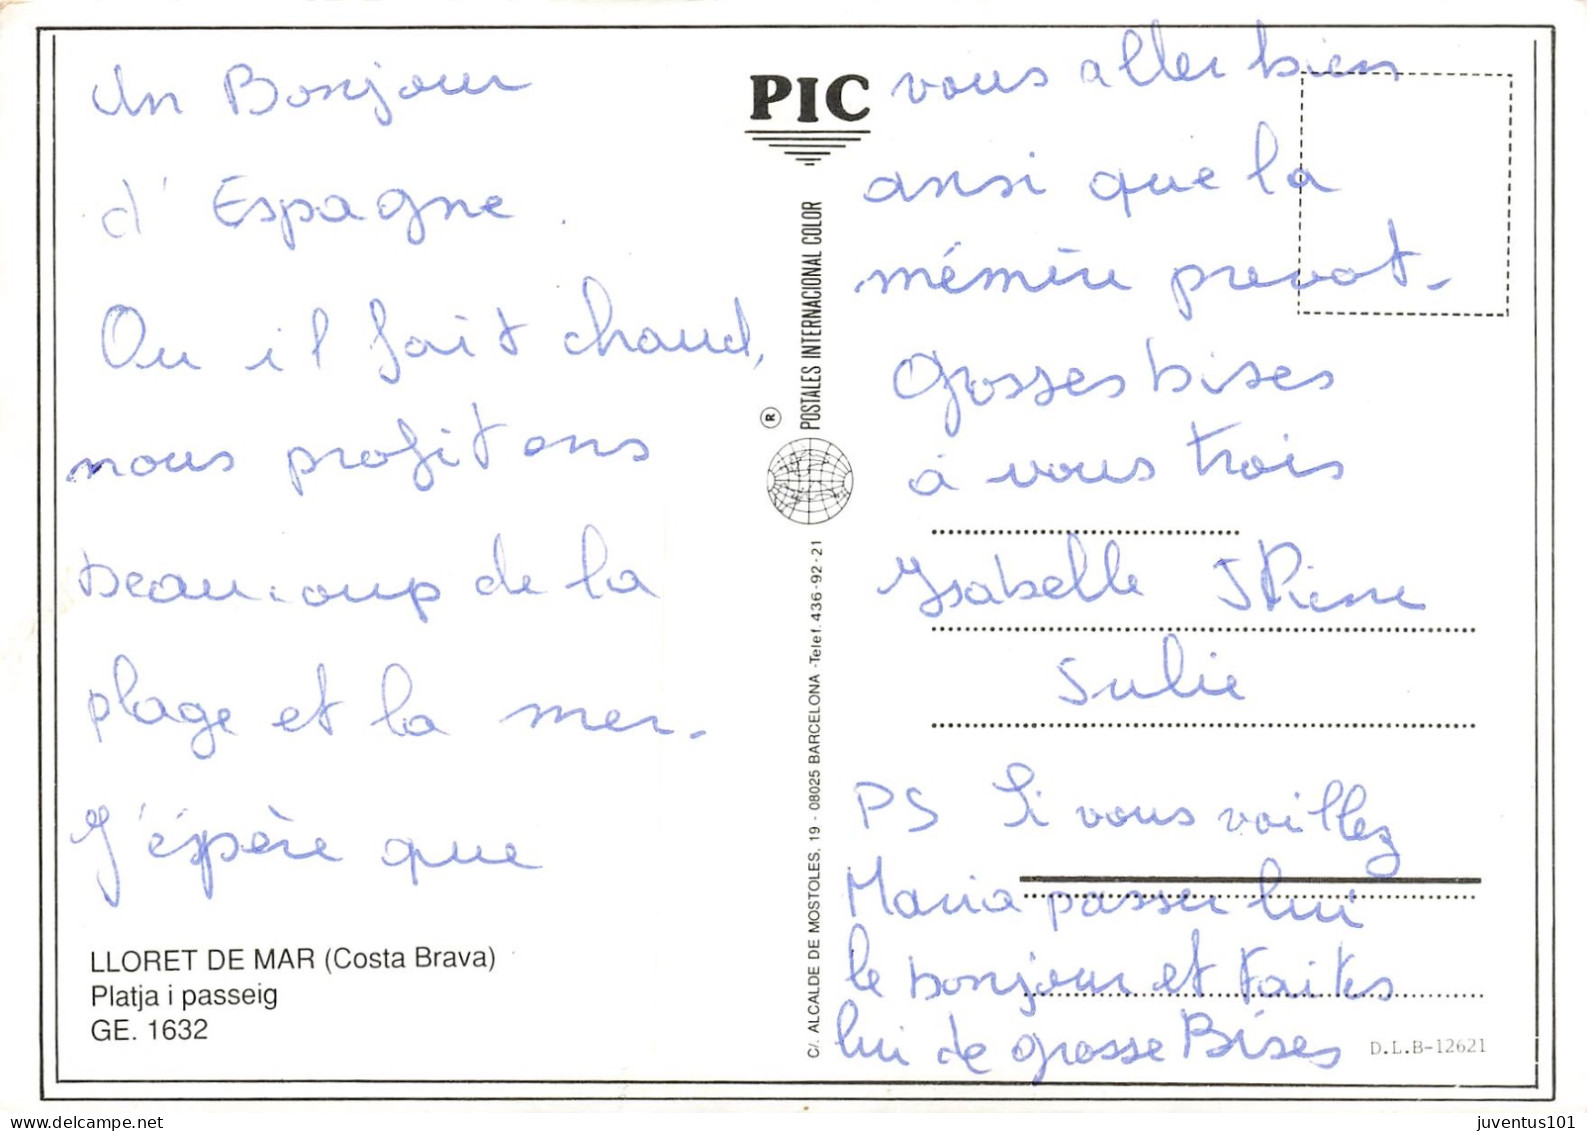 Un Bonjour
d'Espagne.
Ou il fait chaud,
nous profitons
beaucoup de la
plage et la mer.
J'éspère que
LLORET DE MAR (Costa Brava)
Platja i passeig
GE. 1632
PIC
POSTALES INTERNACIONAL COLOR
®
C/. ALCALDE DE MOSTOLES, 19 - 08025 BARCELONA - Telef. 436-92-21
vous aller bien
ansi que la
mémère prevot.
Grosses bises
à vous trois
Isabelle JPierre
Julie
PS Si vous voillez
Maria passer lui
le bonjour et faites
lui de grosse Bises
D.L.B-12621
juventus101